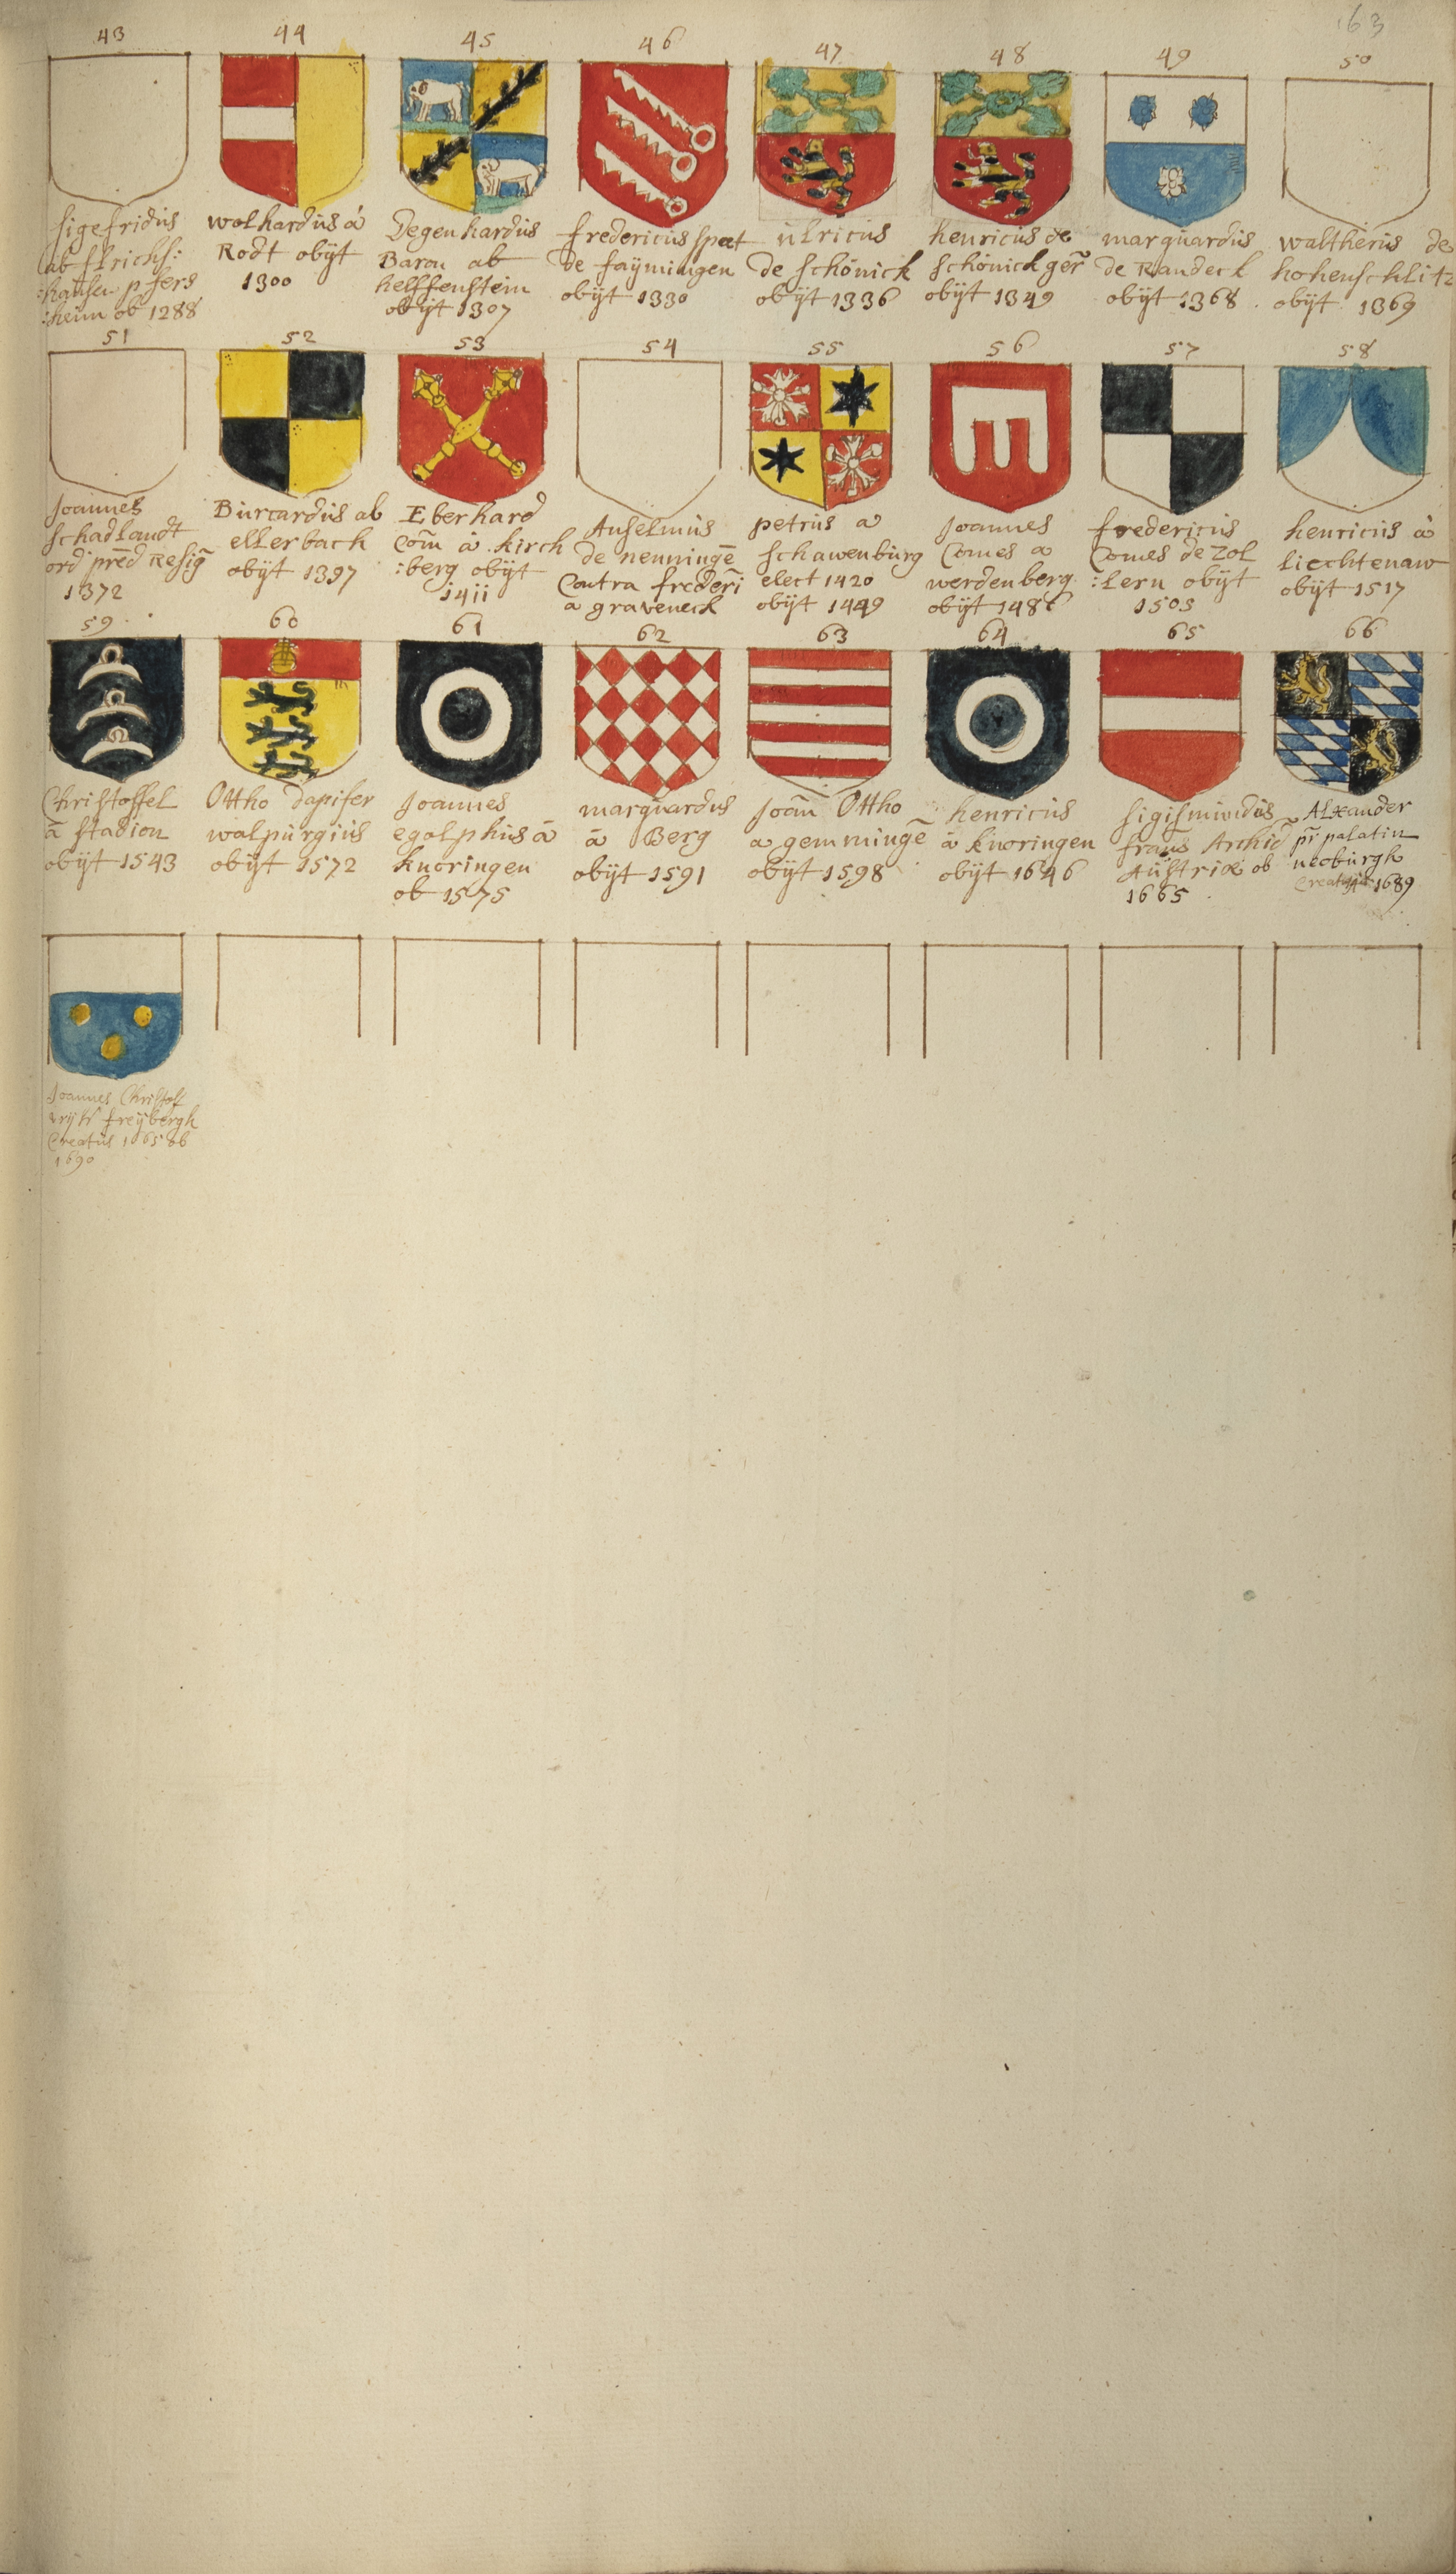 163
43
sigefridus
ab slrichs:
:hausen p fers
:heim ob 1288
44
wolhardus á
Rodt obijt
1300
45
Degenhardus
Baron ab
helffenstein
obijt 1307
46
fredericus spæt
de faÿmingen
obijt 1330
47
ulricus
de schönick
obijt 1336
48
henricus de
schönick ger̃
obijt 1349
49
marquardus
de Randeck
obijt 1368
50
waltherus de
hohenschlitz
obijt 1369
51
Joannes
schadlandt
ord pred Resig̃
1372
52
Burcardus ab
ellerbach
obijt 1397
53
Eberhard
Com̃ á kirch
:berg obijt
1411
54
Anselmus
de nenningē
Contra frederi
a graveneck
55
petrus a
schawenburg
elect 1420
obijt 1449
56
Joannes
Comes a
werdenberg
obijt 1486
57
fredericus
Comes de Zol
:lern obijt
1505
58
henricus á
liechtenaw
obijt 1517
59
Christoffel
á stadion
obijt 1543
60
Ottho dapifer
walpurgius
obijt 1572
61
Joannes
egolphus á
knoringen
ob 1575
62
marquardus
á Berg
obijt 1591
63
Joañ Ottho
a gemmingē
obijt 1598
64
henricus
á knoringen
obijt 1646
65
sigismundus
frañs Archid̃
Austriæ ob
1665
66
ALxander
pr̃ palatin
neoburgh
Creatus 1689
Joannes Christof
vrijhr freijbergh
Creatus 1665 ob
1690